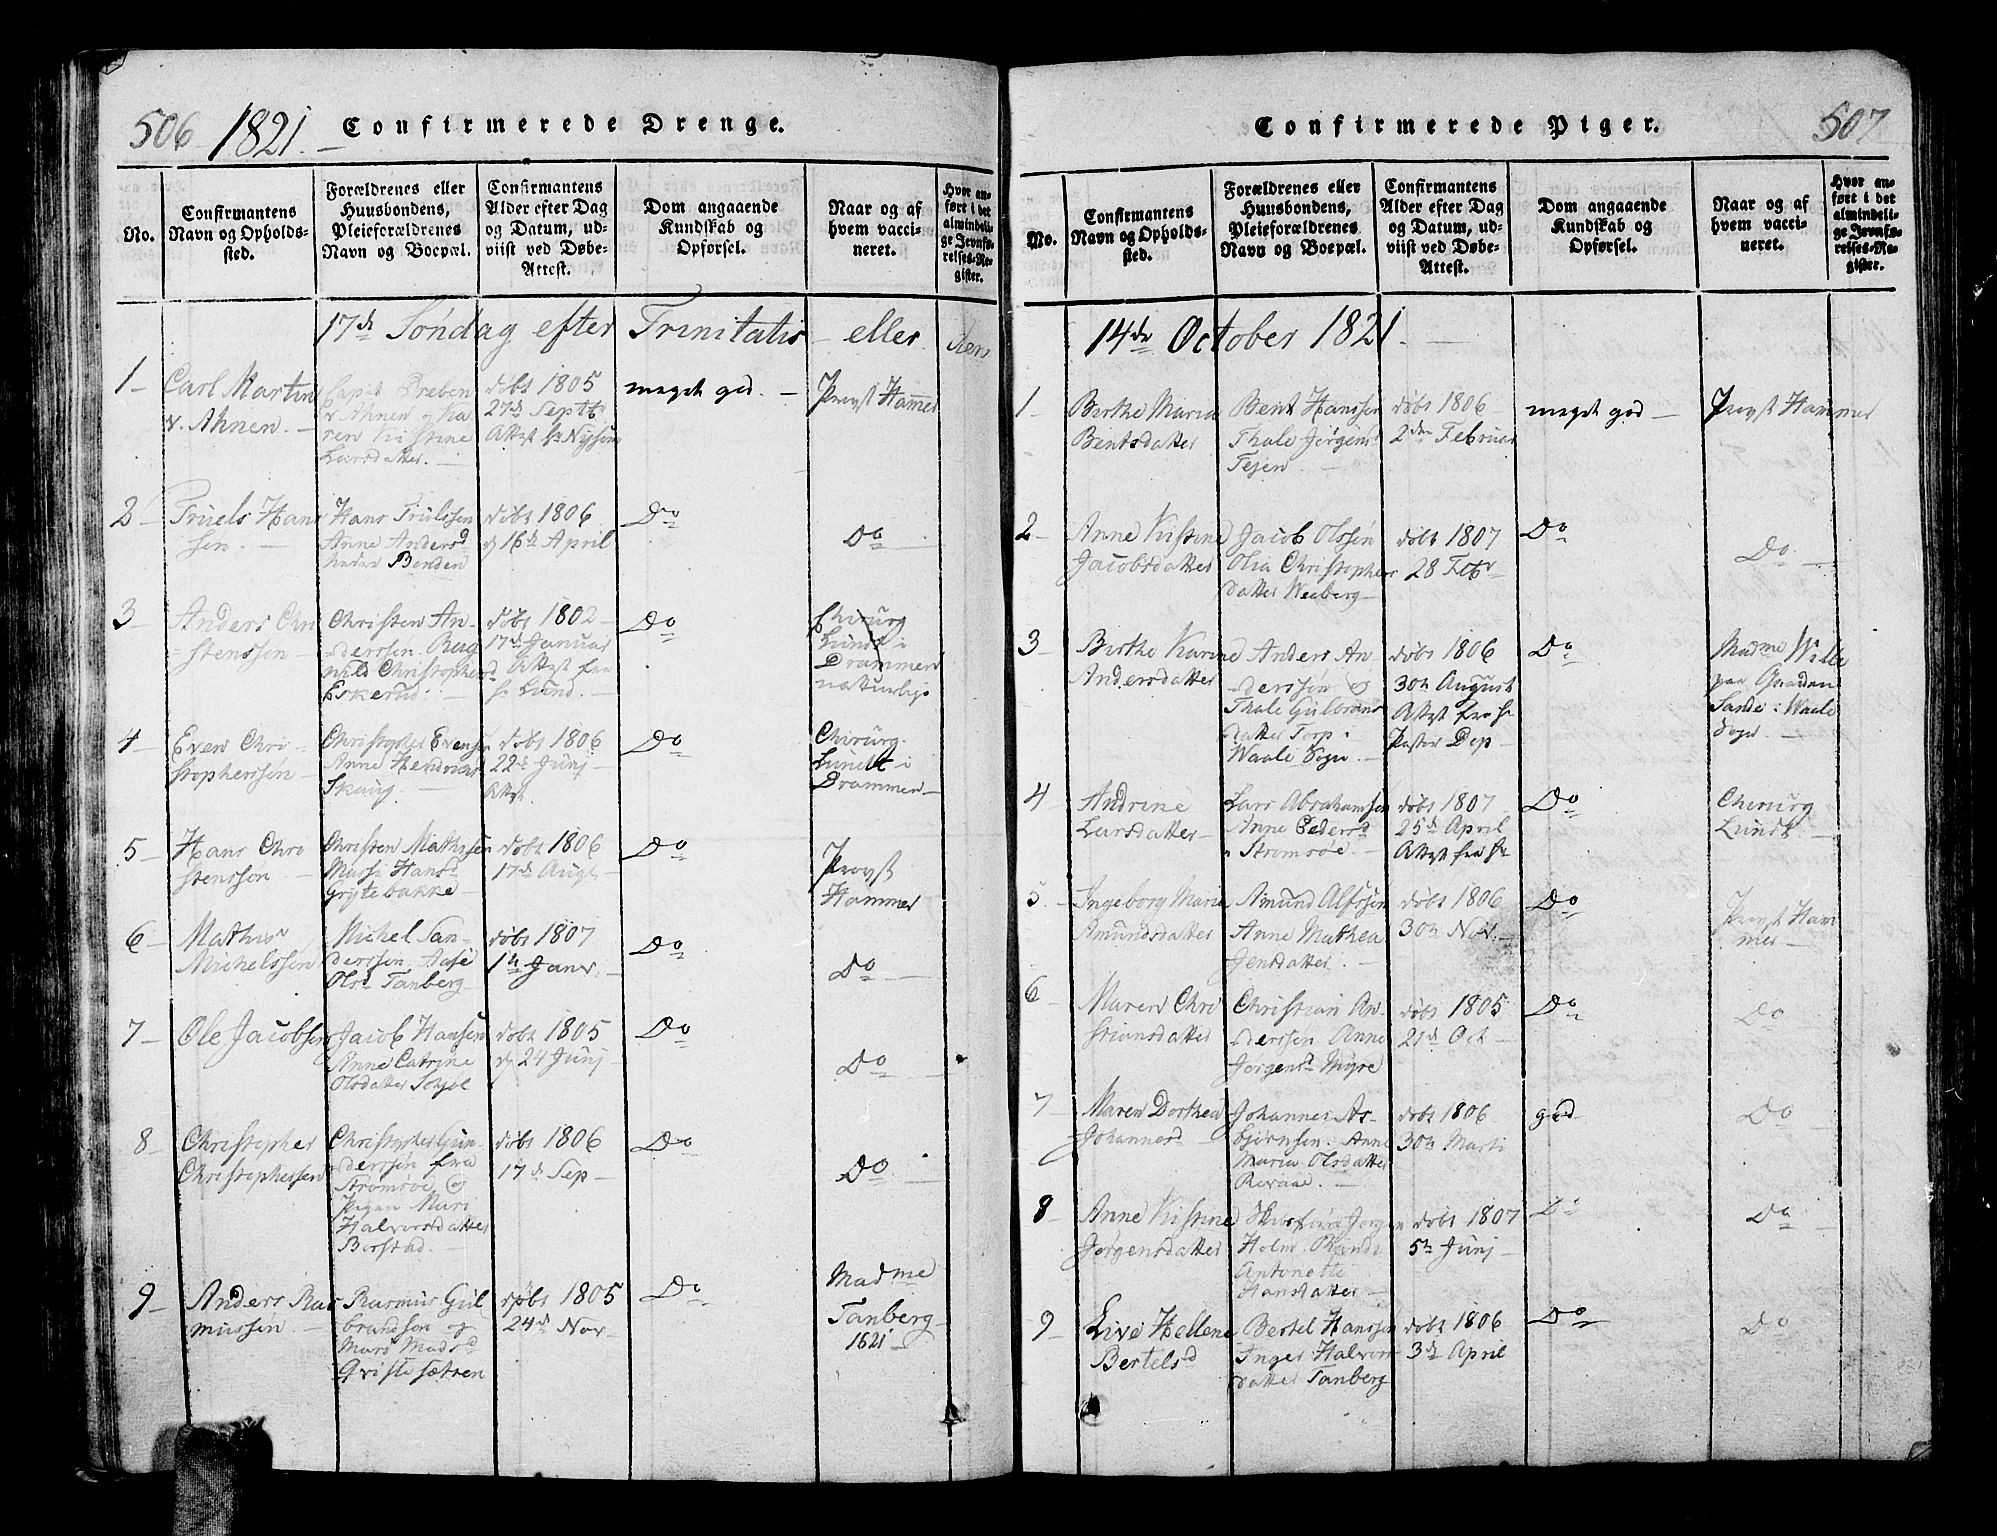 506 1821. Confirmerede Drenge.
No.
Confirmantens
Navn og Opholds-
sted.
Forældrenes eller
Huusbondens,
Pleieforældrenes
Navn og Boepæl.
Confirmantens
Alder efter Dag
og Datum, ud-
viist ved Døbe-
Attest.
Dom angaaende
Kundskab og
Opførsel.
Naar og af
hvem vacci-
neret.
Hvor an-
ført i det
almindeli-
ge Jevnfø-
relses-Re-
gister.
17de Søndag efter Trinitatis eller den
1 Carl Martin
v. Ahnen.
Capit Preben
v Ahnen og Ka
ren Kistine
Larsdatter.
døbt 1805
27de Septb
Attest
meget god.
Provst Hammer
2 Truels Hans
sen.
Hans Trulssen
Anne Andersd
Benden
døbt 1806
d 16de April
Do
Do
3 Anders Chri
stenssøn
Christen An-
derssøn. Rag
nild Christophersd
Eskerud.
døbt 1802
17de Januar
Attest fra
hr Lund.
Do
Chirurg
Lundt i
Drammen
naturlige
4 Even Chri
stopherssøn
Christopher Evensen
Anne
Skaug.
døbt 1806
22de Junj
Attest.
Do
Chirurg.
Lundt i
Drammen
5 Hans Chri
stenssøn
Christen Mathissen
Hansd
Grytebakke
døbt 1806
17de Aug
Do
Provst
Hammer
6 Mathis
Michelssen
Michel San-
derssøn.
Olsd Tanberg
døbt 1807
1te Janr.
Do
Do
7 Ole Jacobsen
Jacob Hansen
Anne Catrine
Olsdatter
døbt 1805
d 24 Junj
Do
Do
8 Christopher
Christophersen
Christopher Gun
derssøn fra
Strømsøe og
Pigen Mari
Halvorsdatter
Berstad.
døbt 1806
17de Sep
Do
Do
9 Anders Ras
mussen
Rasmus Gul
brandsen og
Mari Madsd
Qvistesætren
døbt 1805
24de Nov
Do
Madme
Tanberg
1821
Confirmerede Piger. 507
No.
Confirmantens
Navn og Opholds-
sted.
Forældrenes eller
Huusbondens,
Pleieforældrenes
Navn og Boepæl.
Confirmantens
Alder efter Dag
og Datum, ud-
viist ved Døbe-
Attest.
Dom angaaende
Kundskab og
Opførsel.
Naar og af
hvem vacci-
neret.
Hvor an-
ført i det
almindeli-
ge Jevnfø-
relses-Re-
gister.
14de October 1821.
1 Birthe Maria
Bentsdatter
Bent Hanssen
Thale Jørgens
Tejen.
døbt 1806
2den Februar
meget god
Provst Hammer
2 Anne Kistine
Jacobsdatter
Jacob Olssøn
Olia Christophers
datter Weeberg
døbt 1807
28 Febr
Do
Do
3 Birthe Karine
Andersdatter
Anders An-
derssøn og
Thale Gulbrans
datter Torp i
Waale Sogn
døbt 1806
30te August
Attest fra hr
Pastor Dep
Do
Madme Wille
paa Gaarden
Sande i Waale
Sogn.
4 Andrine
Larsdatter
Lars Abrahamsen
Anne Pedersd
Strømsøe.
døbt 1807
25de April
Attest fra hr
Do
Chirurg
Lundt
5 Ingeborg Marie
Amundsdatter
Amund Alfssøn
Anne Mathea
Jensdatter.
døbt 1806
30te Nov.
Do
Provst Ham
mer
6 Maren Chri
stiansdatter
Christian An-
derssøn Anne
Jørgensd Myre
døbt 1805
21de Oct
Do
Do
7 Maren Dorthea
Johannesd
Johannes As-
bjørnsen. Anne
Maria Olsdatter
døbt 1806
30te Marti
god
Do
8 Anne Kistine
Jørgensdatter
Jørgen
Holm.
Antonette
Hansdatter
døbt 1807
5te Junj
Do
Do
9 Live Hellene
Bertelsd
Bertel Hanssen
Inger Halvors
datter Tanberg
døbt 1806
3de April
Do
Do